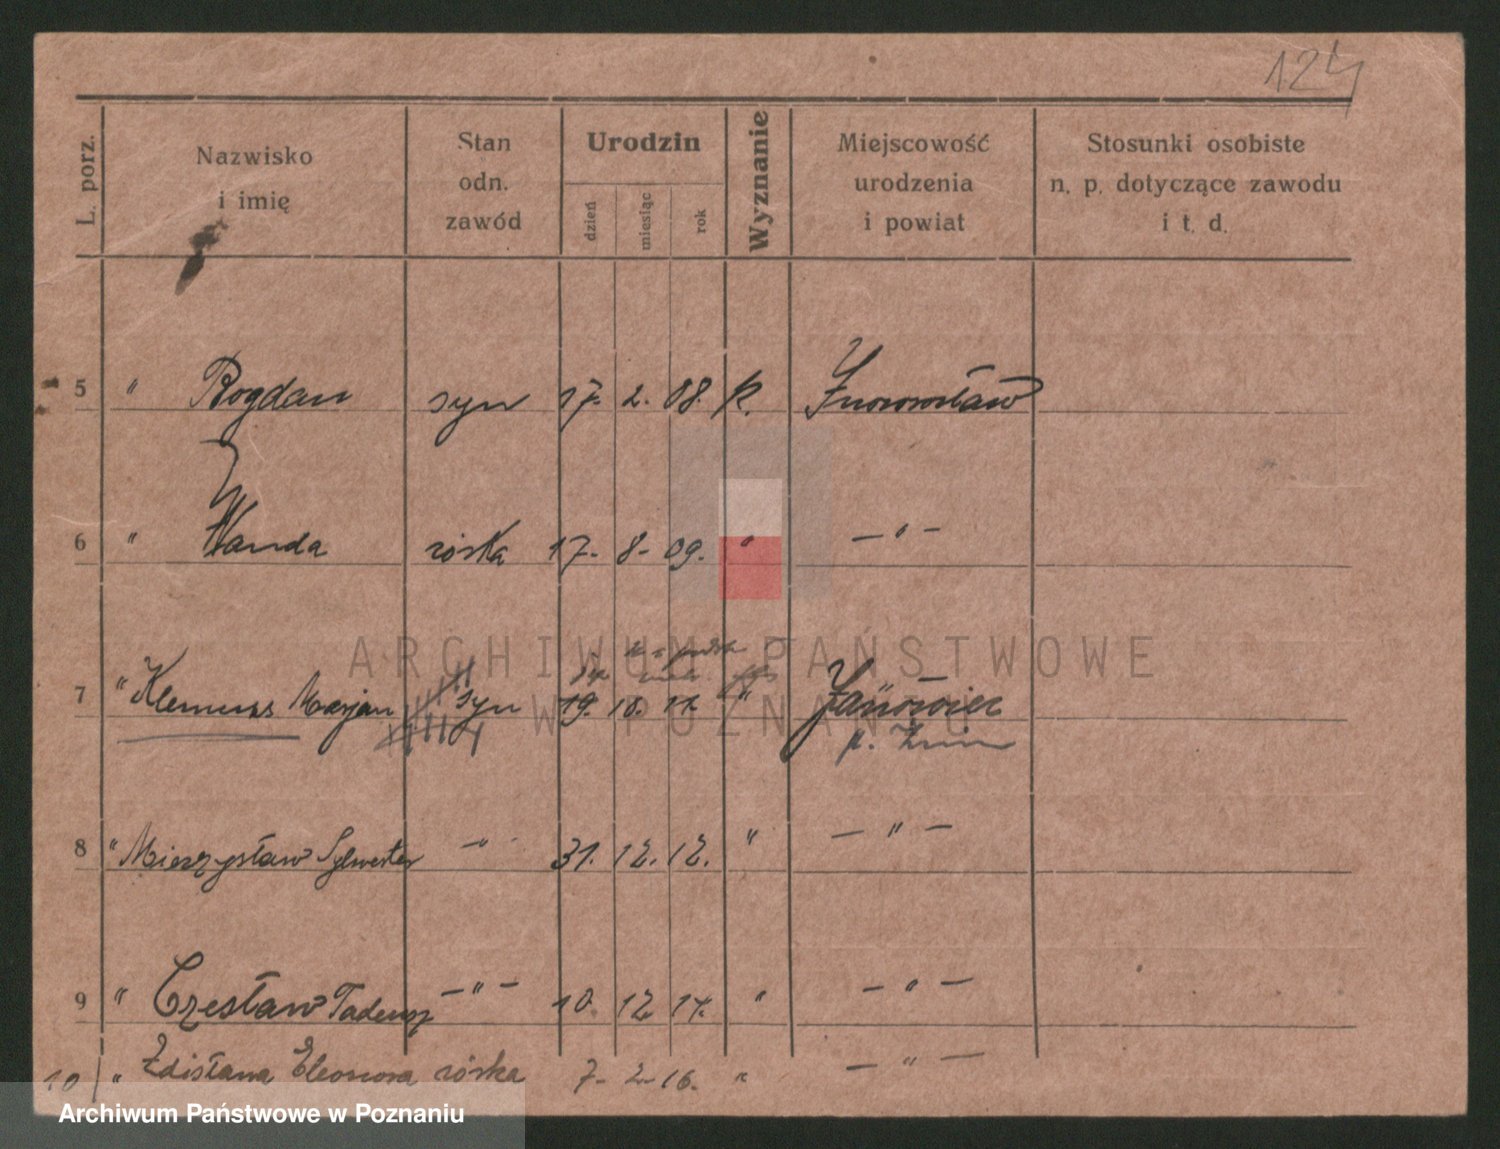 124
L. porz.
Nazwisko
i imię
Stan
odn.
zawód
Urodzin
dzień
miesiąc
rok
Wyznanie
Miejscowość
urodzenia
i powiat
Stosunki osobiste
n. p. dotyczące zawodu
i t. d.
5 " Bogdan syn 17. 2. 08. k. Inowrocław
6 " Wanda córka 17. 8. 09. " — " —
7 " Klemens Marjan syn 19. 10. 11. " Janowiec
p. Żnin
8 " Mieczysław Sylwester — " 31. 12. 12. " — " —
9 " Czesław Tadeusz — " — 10. 12. 14. " — " —
10 " Zdisława Eleonora córka 7. 2. 16. " — " —
ARCHIWUM PAŃSTWOWE
W POZNANIU
Archiwum Państwowe w Poznaniu